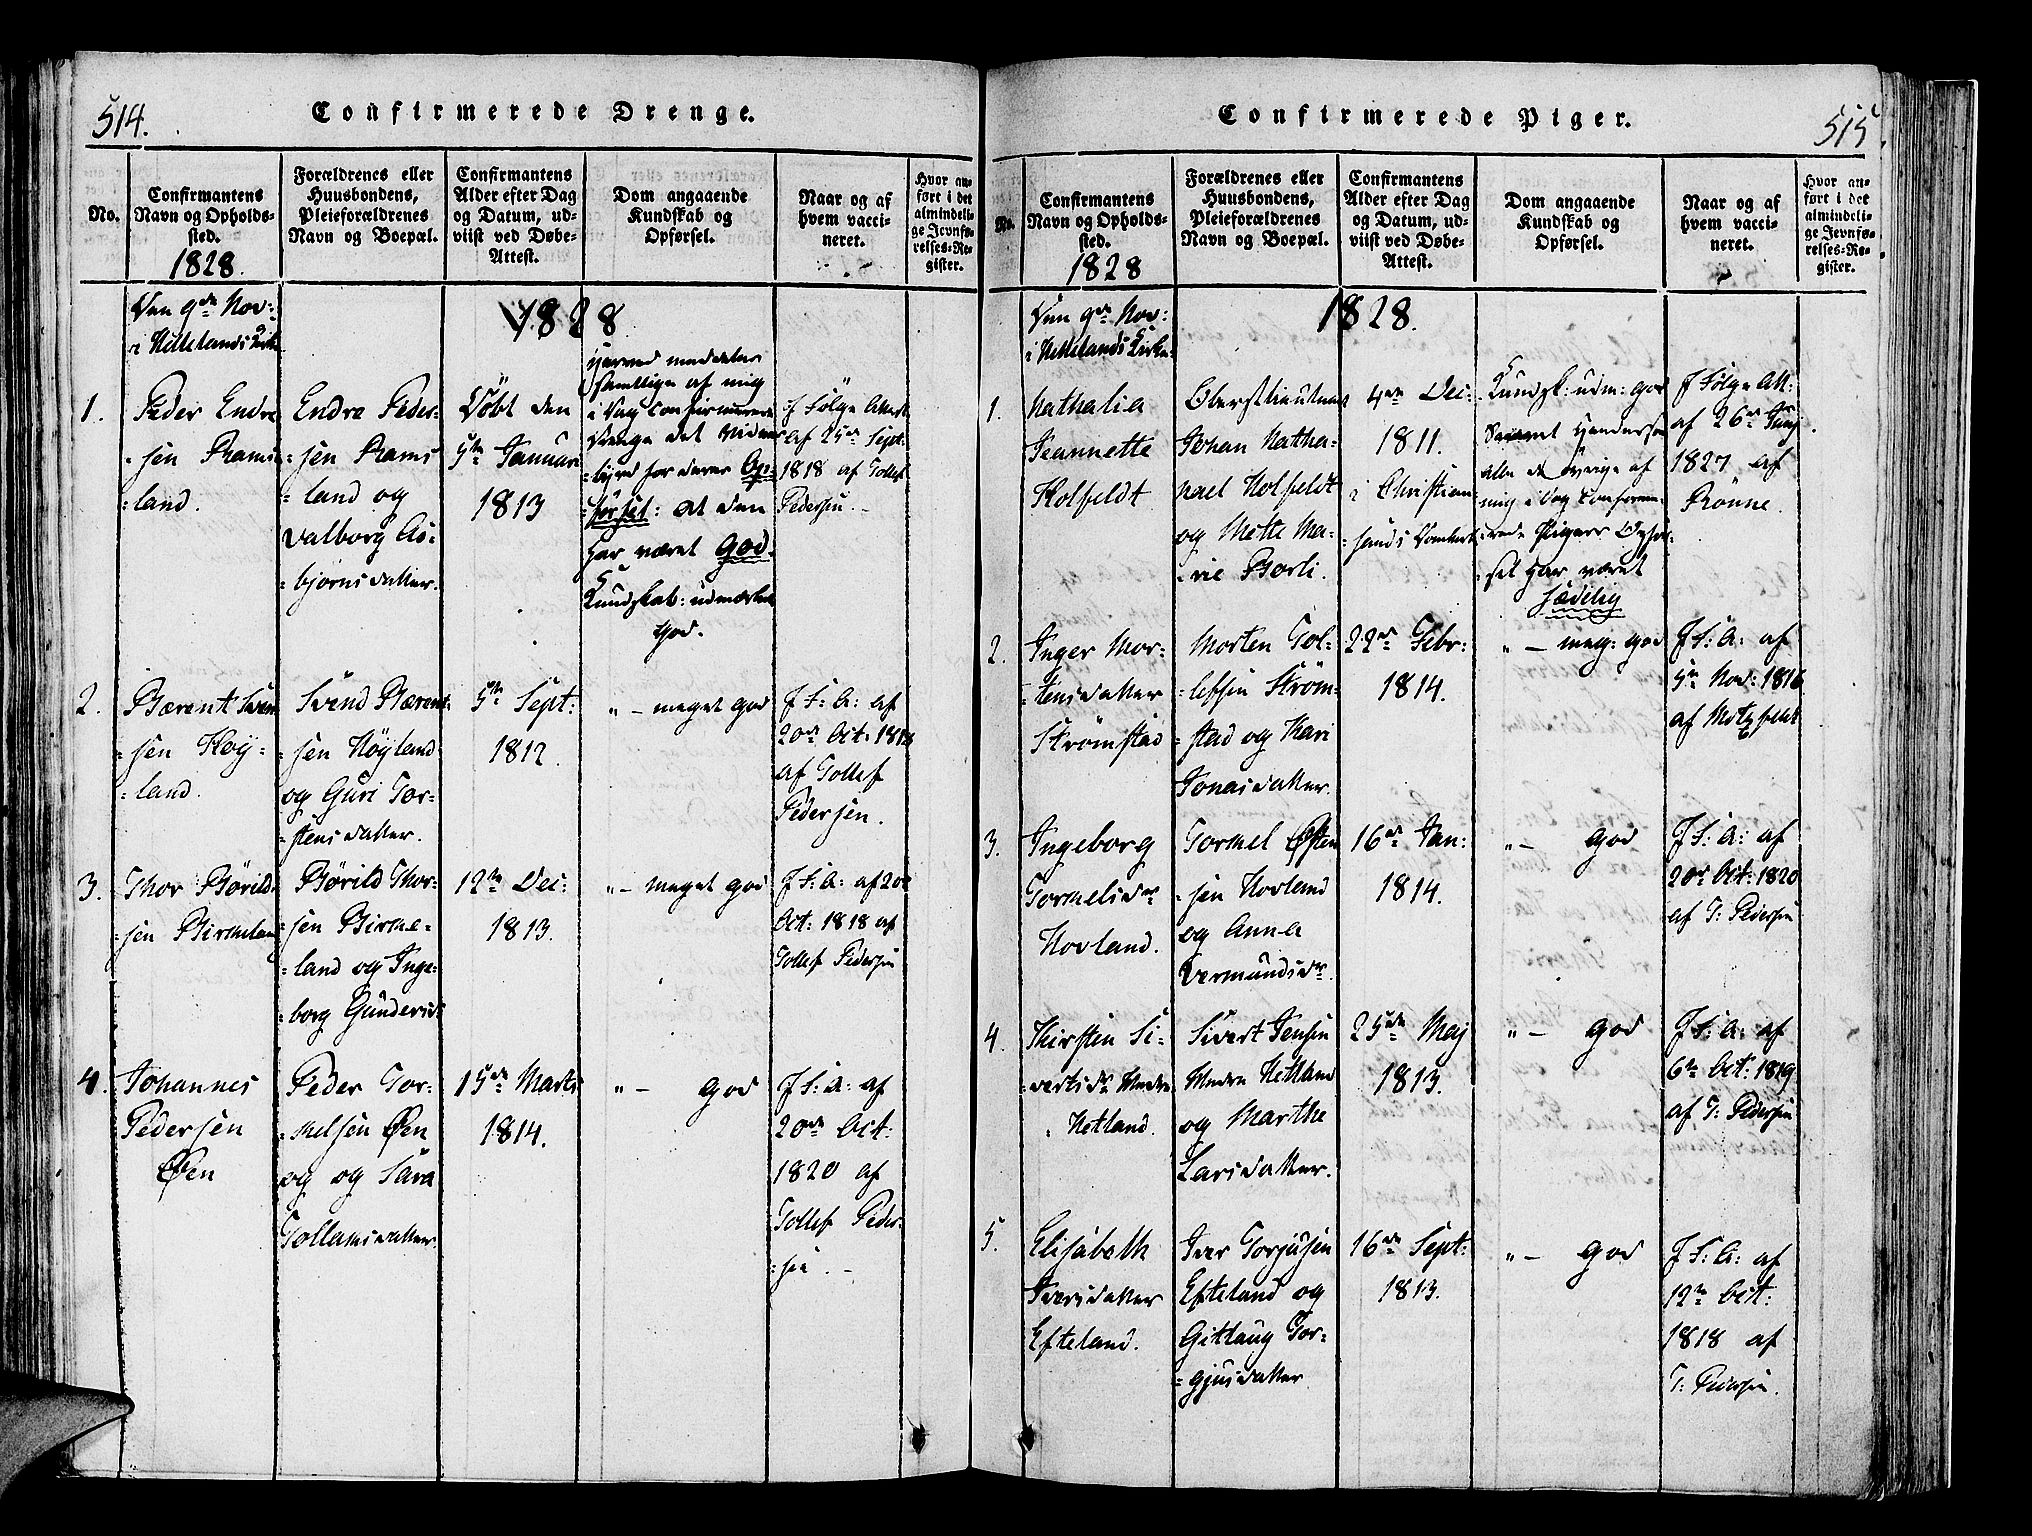 514.
Confirmerede Drenge.
No.
Confirmantens
Navn og Opholds-
sted.
1828.
Forældrenes eller
Huusbondens,
Pleieforældrenes
Navn og Boepæl.
Confirmantens
Alder efter Dag
og Datum, ud-
viist ved Døbe-
Attest.
Dom angaaende
Kundskab og
Opførsel.
Naar og af
hvem vacci-
neret.
Hvor an-
ført i det
almindeli-
ge Jevnfø-
relses-Re-
gister.
Den 9de Nov:
i Hellelands Kirke
1828
1.
Peder Endre
-sen Rams
-land.
Endre Peder-
-sen Rams
-land og
Valborg As-
-bjørnsdatter.
Döbt den
5te Januari
1813
Herved meddeles
samtlige af mig
i Dag confirmerede
Drenge det Vidnes
-byrd for deres Op-
-førsel: at den
har været God.
Kundskab: udmærket
God.
J Følge Attest
af 25de Sept:
1818 af Tollef
Pedersen.
2.
Bærent Sven
-sen Høy-
-land.
Svend Bærent-
-sen Höyland
og Guri Tor-
-stensdatter.
5te Sept:
1812.
" - meget god
J F: A: af
20de Oct: 1818
af Tollef
Pedersen.
3.
Thor Börild-
-sen Birkeland
Börild Thor-
-sen Birke-
-land og Inge-
-borg Gundersdr
12te Dec:
1813.
" - meget god
J F: A: af 20de
Oct: 1818 af
Tollef Pedersen
4.
Johannes
Pedersen
Øen
Peder Tor-
-kelsen Øen
og og Sara
Tollamsdatter.
15de Marts
1814.
" - god
J F: A: af
20de Oct:
1820 af
Tollef Peder-
-sen.
Confirmerede Piger.
515.
No.
Confirmantens
Navn og Opholds-
sted.
1828
Forældrenes eller
Huusbondens,
Pleieforældrenes
Navn og Boepæl.
Confirmantens
Alder efter Dag
og Datum, ud-
viist ved Døbe-
Attest.
Dom angaaende
Kundskab og
Opførsel.
Naar og af
hvem vacci-
neret.
Hvor an-
ført i det
almindeli-
ge Jevnfø-
relses-Re-
gister.
Den 9de Nov:
i Hellelands Kirke
1828.
1.
Nathalia
Jeannette
Holfeldt
Oberstlieutnant
Johan Natha-
-nael Holfeldt
og Mette Ma-
-rie Borli.
4de Dec:
1811.
i Christian-
-sands Domkirke
Kundsk: udm: god
alle de øvrige af
mig i Dag confirme-
-rede Pigers Opfør-
-sel har været
Sædelig
J Følge Att:
af 26de Junj
1827 af
Rönne.
2.
Inger Mor-
-tensdatter
Strömstad
Morten Tol-
-lefsen Ström-
-stad og Kari
Jonasdatter.
22de Febr:
1814.
" - meg: god
J F: A: af
5te Nov: 1816
af Motzfeldt
3.
Ingeborg
Tormelsdr
Hovland.
Tormel Østen
-sen Hovland
og Anna
Vermundsdr.
16de Jan:
1814.
" - god
J F: A: af
20de Oct: 1820
af T: Pedersen
4.
Kirsten Si-
-vertsdr Nedre
Hetland.
Sivert Jensen
Nedre Hetland
og Marthe
Larsdatter.
25de Maj
1813.
" - god
J F: A: af
6te Oct: 1819
af T: Pedersen
5.
Elisabeth
Iversdatter
Efteland.
Iver Torjusen
Efteland og
Gitlaug Tor-
-gjusdatter
16de Sept:
1813.
" - god
J F: A: af
12te Oct:
1818 af
T: Pedersen.